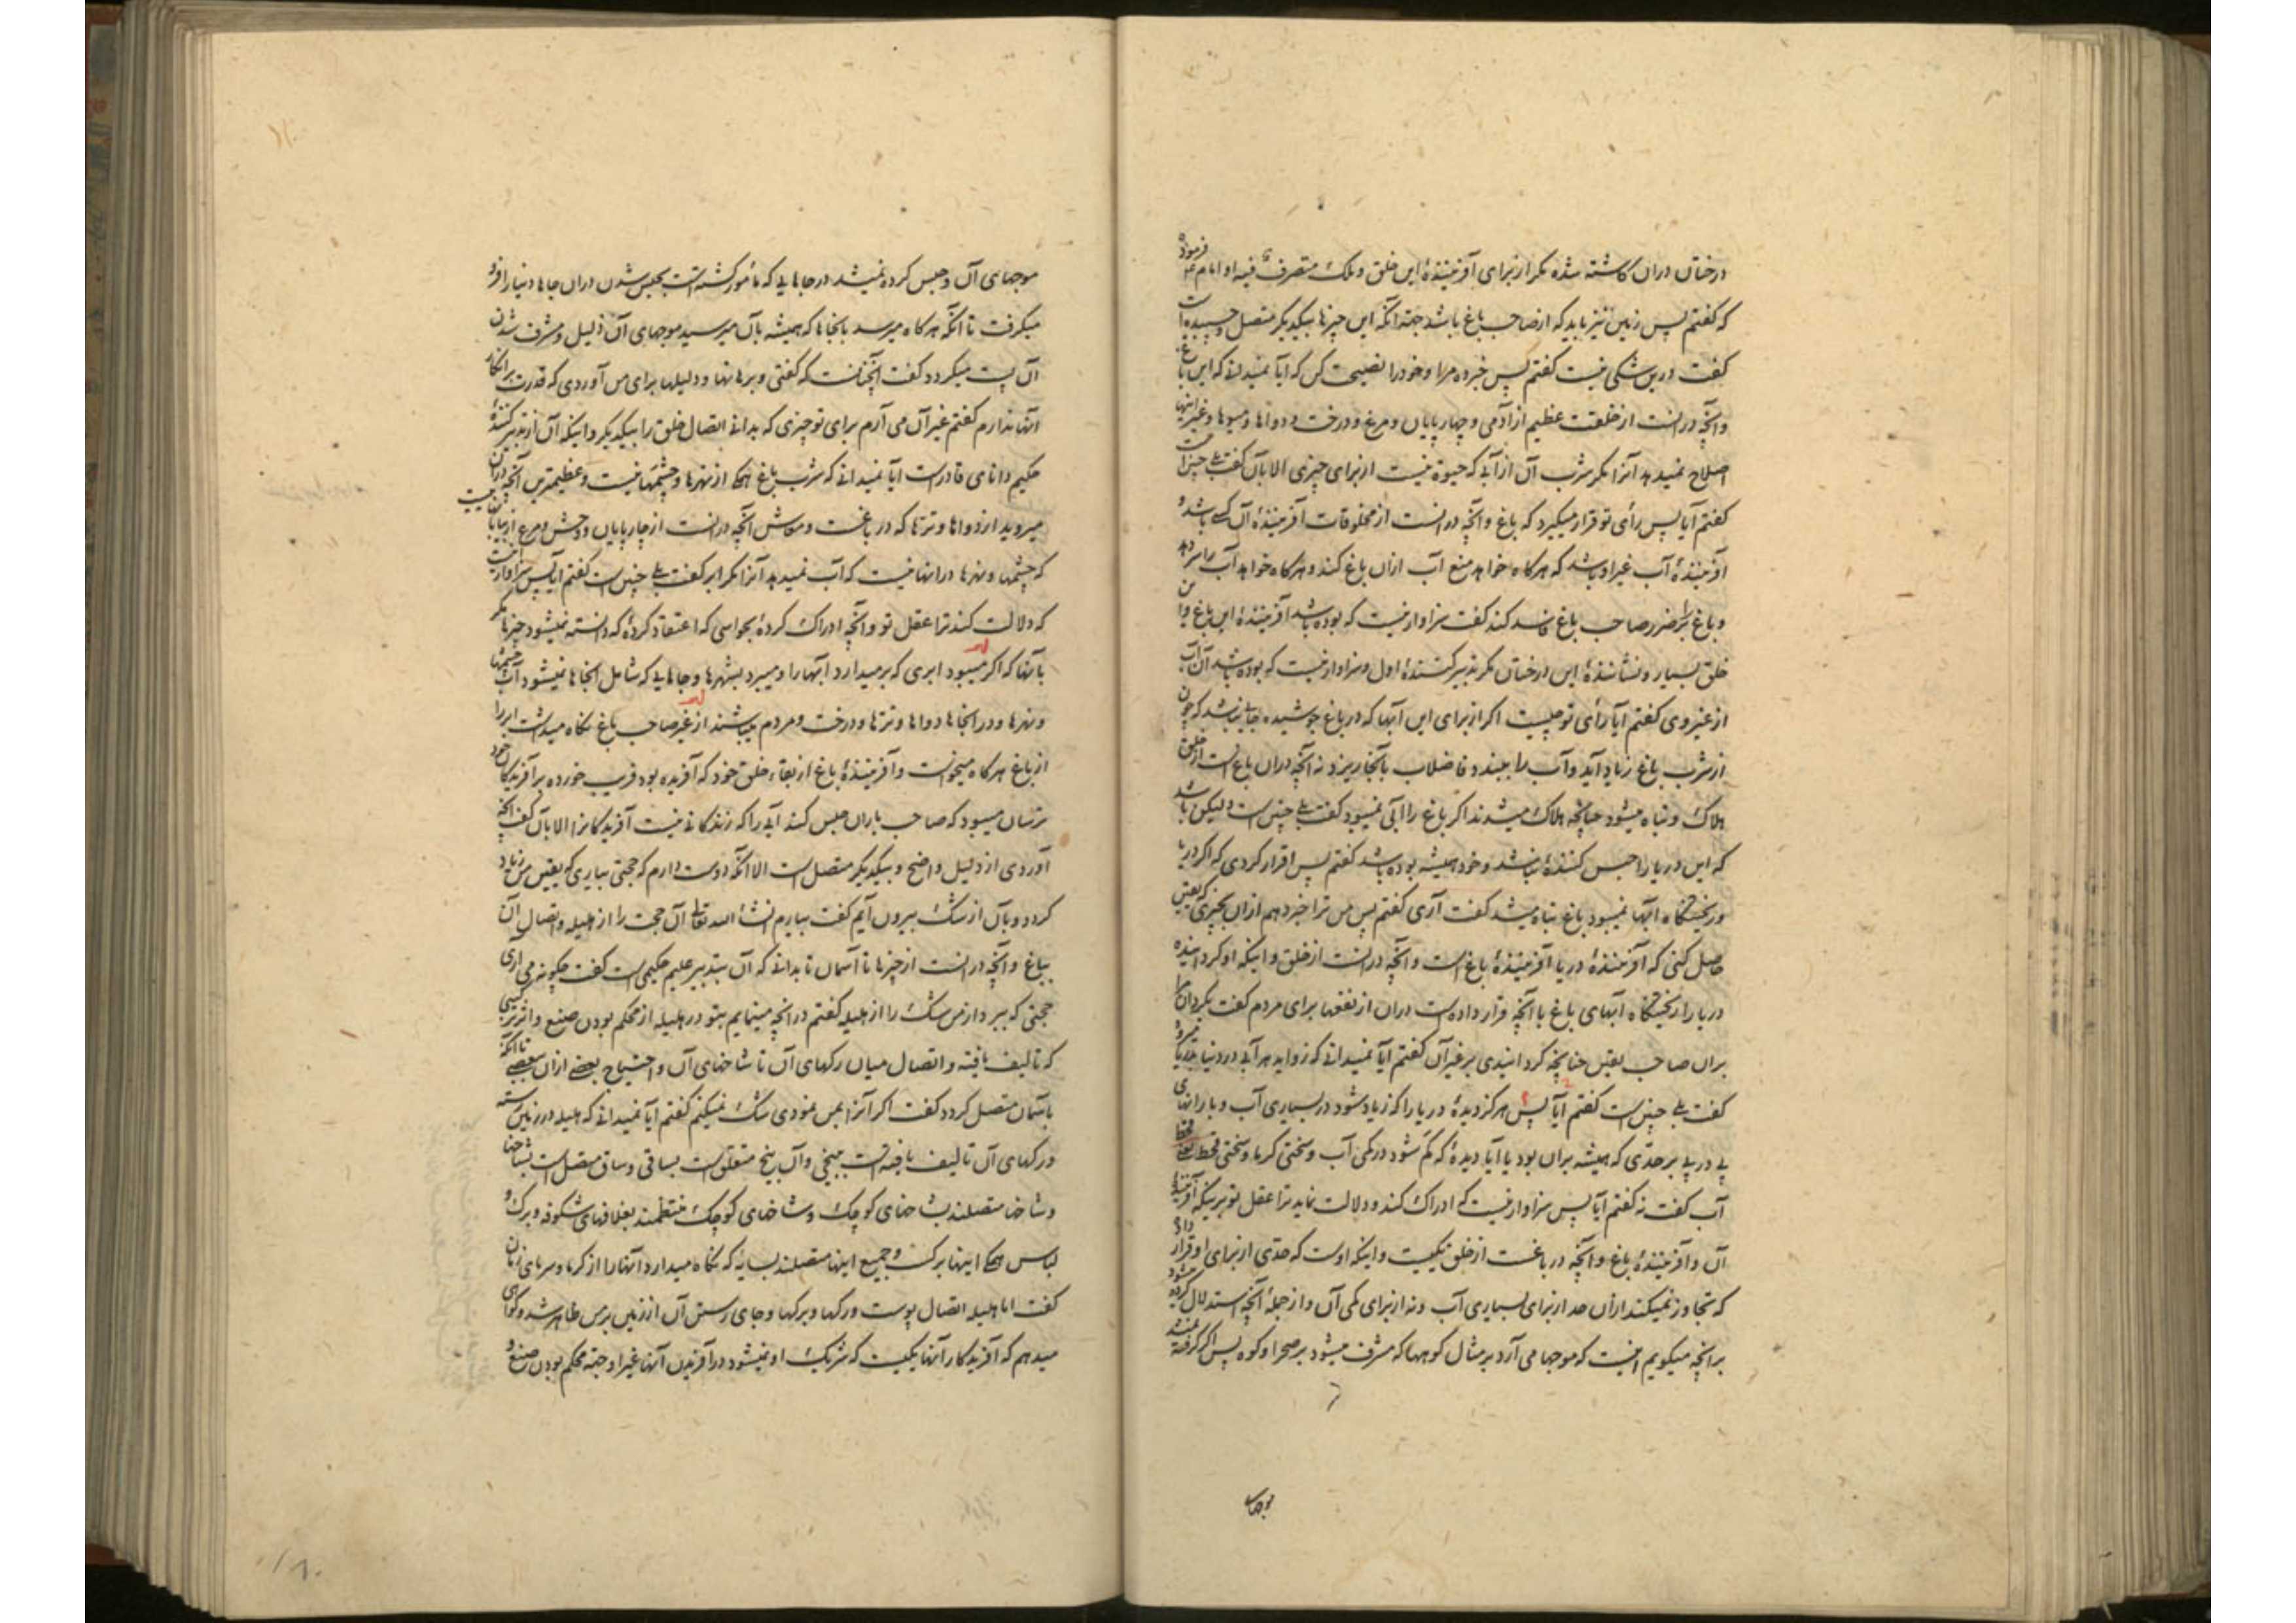 درختان دران کاشته شده مکر از برای آفرینندهٔ این خلق و ملک متصرف فیه او امام ع فرمود
که گفتم پس زمین نیز باید که از صاحب باغ باشد جهة انکه این چیزها بیکدیگر متصل و چسبیده است
گفت درین شکی نیست گفتم پس خبر ده مرا و خود را نصیحت کن که آیا نمیدانی که این باغ
وانچه درانست از خلقت عظیم از آدمی و چهارپایان و مرغ و درخت و دواها و میوها و غیر اینها
اصلاح نمیدهد آنرا مکر شرب آن از آبی که حیوة نیست از برای چیزی الا بآن گفت بلی چنین است
گفتم آیا پس رأی تو قرار میگیرد که باغ وانچه درانست از مخلوقات آفرینندهٔ آن کسی باشد و
آفرینندهٔ آب غیر او باشد که هرکاه خواهد منع آب ازان باغ کند و هرکاه خواهد آب را سر دهد
و باغ را بر ضرر صاحب باغ فاسد کند گفت سزاوار نیست که بوده باشد آفرینندهٔ این باغ و این
خلق بسیار و نشانندهٔ این درختان مکر تدبیر کنندهٔ اول و سزاوار نیست که بوده باشد آن آب
از غیر وی گفتم آیا رأی تو چیست اکر از برای این آبها که در باغ جوشیده جایی نباشد که چون
از شرب باغ زیاد آید و آب را ببندد فاضلاب بآنجا ریزد نه آنچه دران باغ است از خلق
هلاک و تباه میشود چنانچه هلاک میشدند اکر باغ را آبی نمیبود گفت بلی چنین است ولیکن باشد
که این دریا را حبس کنندهٔ نباشد و خود همیشه بوده باشد گفتم پس اقرار کردی که اکر دریا
و ریختنگاه آبها نمیبود باغ تباه میشد گفت آری گفتم پس من ترا خبر دهم ازان بچیزی که یقین
حاصل کنی که آفرینندهٔ دریا آفرینندهٔ باغ است وانچه درانست از خلق و اینکه او کردانیده
دریا را ریختنگاه آبهای باغ با آنچه قرار داده است دران از نفعها برای مردم گفت بکردان مرا
بران صاحب یقین چنانچه کردانیدی بر غیر آن گفتم آیا نمیدانی که زواید هر آبی در دنیا بدریا میرود
گفت بلی چنین است گفتم آیا پس هرکز دیدهٔ دریا را که زیاد شود در بسیاری آب و بارانهای
پی در پی بر حدی که همیشه بران بود یا آیا دیدهٔ که کم شود در کمی آب و سختی گرما و سختی قحط
آب گفت نه گفتم آیا پس سزاوار نیست که ادراک کند و دلالت نماید ترا عقل تو برینکه آفرینندهٔ
آن و آفرینندهٔ باغ وانچه در باغست از خلق یکیست و اینکه اوست که حدی از برای او قرار داد
که تجاوز نمیکند ازان حد از برای بسیاری آب و نه از برای کمی آن و از جملهٔ آنچه استدلال کرده میشود
برانچه میکویم اینست که موجها می آرد بر مثال کوهها که مشرف میشود بر صحرا و کوه پس اکر کرفته نمیشد
موجهای
موجهای آن و حبس کرده نمیشد در جاهایی که مأمور کشته است بحبس شدن دران جاها دنیا را فرو
میکرفت تا آنکه هرکاه میرسد بانجاها که همیشه بآن میرسید موجهای آن ذلیل و مشرف شدن
آن پست میکردد گفت آنچنانست که گفتی و برهانها و دلیلها برای من آوردی که قدرت بر انکار
آنها ندارم گفتم غیر آن می آرم برای تو چیزی که بدانی اتصال خلق را بیکدیکر و اینکه آن از تدبیر کنندهٔ
حکیم دانای قادر است آیا نمیدانی که شرب باغ همکی از نهرها و چشمها نیست و عظیمترین آنچه دران
میروید از دواها و تره‌ها که در باغست و معاش آنچه درانست از چارپایان و وحش و مرغ از بیابانیست
که چشمها و نهرها درانها نیست که آب نمیدهد آنرا مکر ابر گفت بلی چنین است گفتم آیا پس سزاوار نیست
که دلالت کند ترا عقل تو وانچه ادراک کردهٔ بحواسی که اعتقاد کردهٔ که دانسته نمیشود چیزها مکر
بآنها که اکر میبود ابری که برمیدارد آبها را و میبرد بشهرها و جاهایی که شامل انجاها نمیشود آب چشمها
و نهرها و در انجاها دواها و تره‌ها و درخت و مردم میباشند از غیر صاحب باغ نکاه میداشت ابر را
از باغ هرکاه میخواست و آفرینندهٔ باغ از بقاء خلق خود که آفریده بود فریب خورده بر آفریدکان خود
ترسان میبود که صاحب باران حبس کند آبی را که زندکانی نیست آفریدکانرا الا بآن گفت آنچه
آوردی از دلیل واضح و بیکدیکر متصل است الا انکه دوست دارم که حجتی بیاری که یقین من زیاد
کردد و بآن از شک بیرون آیم گفت بیارم انشاء الله تعالی آن حجت را از هلیله و اتصال آن
بباغ وانچه درانست از چیزها تا آسمان تا بدانی که آن بتدبیر علیم حکیمی است گفت چکونه می آری
حجتی که ببرد از من شک را از هلیله گفتم در انچه مینمایم بتو در هلیله از محکم بودن صنع و اثر ترکیبی
که تالیف یافته و اتصال میان رکهای آن تا شاخهای آن و احتیاج بعضی ازان ببعضی تا انکه
بآسمان متصل کردد گفت اکر آنرا بمن نمودی شک نمیکنم گفتم آیا نمیدانی که هلیله در زمین رسته
و رکهای آن تالیف یافته است ببیخی و آن بیخ متعلق است بساقی و ساق متصل است بشاخها
و شاخها متصلند بشاخهای کوچک و شاخهای کوچک منتظمند بغلافهای شکوفه و برک و
لباس همکی اینها برک و جمیع اینها متصلند بسایه که نکاه میدارد آنها را از کرما و سرمای زمان
گفت اما هلیله اتصال پوست و رکها و برکها و جای رستن آن از زمین بر من ظاهر شد و کواهی
میدهم که آفریدکار آنها یکیست که شریک او نمیشود در آفریدن آنها غیر او جهة محکم بودن صنع و